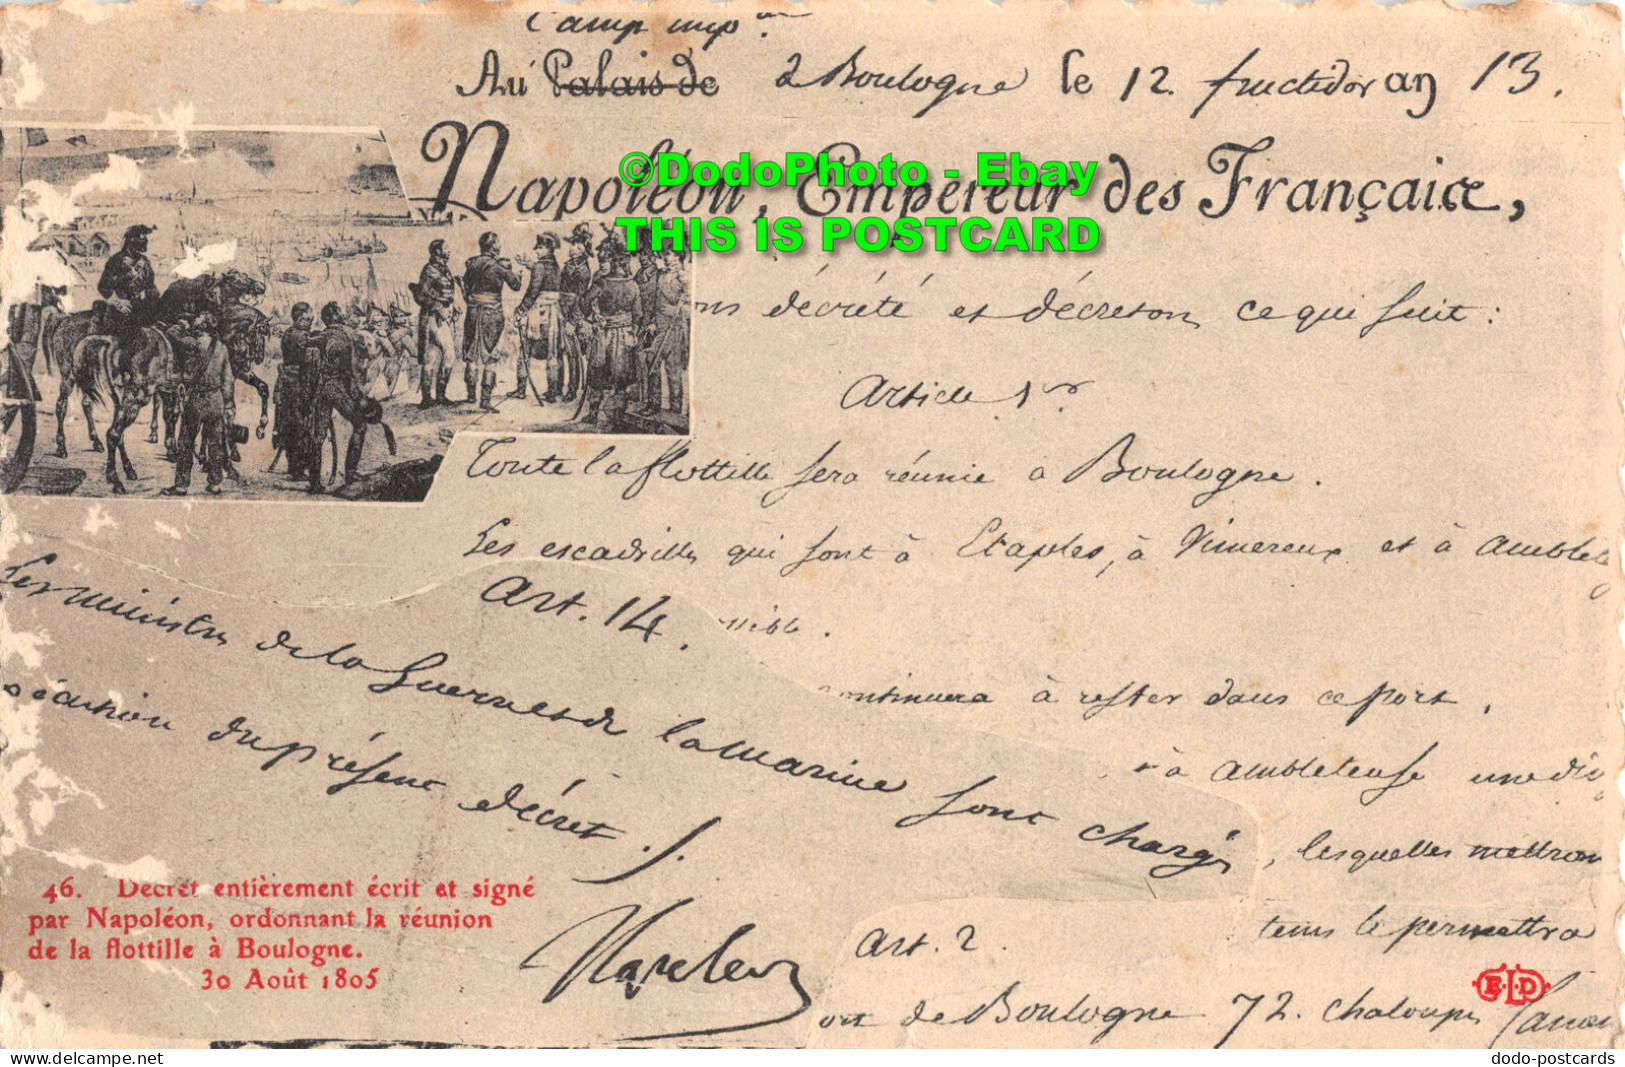 Camp imp.al
Au Palais de à Boulogne le 12. fructidor an 13.
Napoléon, Empereur des Français,
©DodoPhoto - Ebay
THIS IS POSTCARD
ons décrété et décretons ce qui suit :
Article 1er
Toute la flottille sera réunie à Boulogne.
Les escadrilles qui sont à Etaples, à Vimereux et à Amblet
Art. 14.
continuera à rester dans ce port.
Les ministres de la Guerre et de la marine sont chargés
à Ambleteuse une div
exécution du présent décret ./.
, lesquelles mettron
46. Décret entièrement écrit et signé
par Napoléon, ordonnant la réunion
de la flottille à Boulogne.
30 Août 1805
Napoleon
Art. 2.
tems le permettra
ort de Boulogne 72. chaloupes Canon
E.L.D
dodo-postcards
delcampe.net